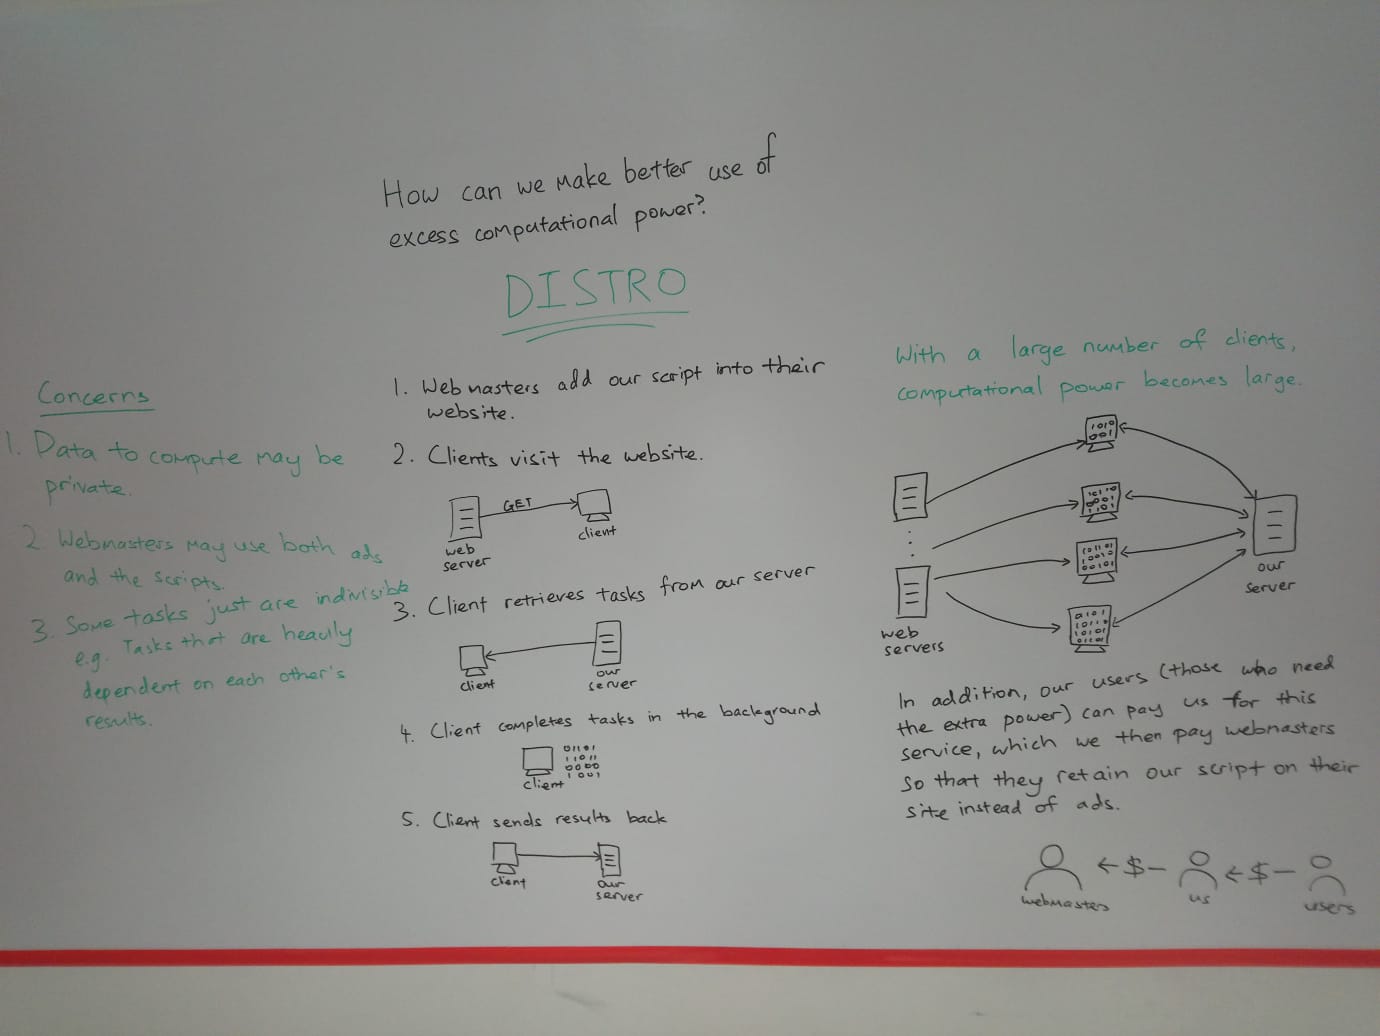 How can we make better use of
excess computational power?
DISTRO
Concerns
1. Data to compute may be
private.
2 Webmasters may use both ads
and the scripts.
3. Some tasks just are indivisible
e.g. Tasks that are heavily
dependent on each other's
results.
1. Webmasters add our script into their
website.
2. Clients visit the website.
GET
web
server
client
3. Client retrieves tasks from our server
client
our
server
4. Client completes tasks in the background
01101
11011
0000
1001
client
5. Client sends results back
client
our
server
With a large number of clients,
computational power becomes large.
1010
001
web
servers
our
server
In addition, our users (those who need
the extra power) can pay us for this
service, which we then pay webmasters
so that they retain our script on their
site instead of ads.
← $ — ← $ —
webmasters
us
users